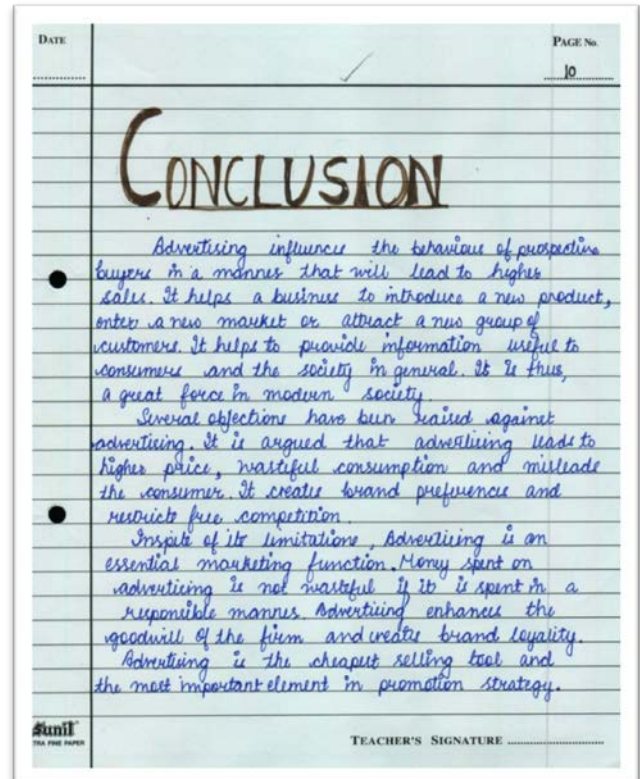 DATE
PAGE No.
10
CONCLUSION
Advertising influences the behaviour of prospective
buyers in a manner that will lead to higher
sales. It helps a business to introduce a new product,
enter a new market or attract a new group of
customers. It helps to provide information useful to
consumers and the society in general. It is thus,
a great force in modern society.
Several objections have been raised against
advertising. It is argued that advertising leads to
higher price, wasteful consumption and misleads
the consumer. It creates brand preferences and
restricts free competition.
Inspite of its limitations, Advertising is an
essential marketing function. Money spent on
advertising is not wasteful if it is spent in a
responsible manner. Advertising enhances the
goodwill of the firm and creates brand loyality.
Advertising is the cheapest selling tool and
the most important element in promotion strategy.
Sunil
TRA FINE PAPER
TEACHER'S SIGNATURE